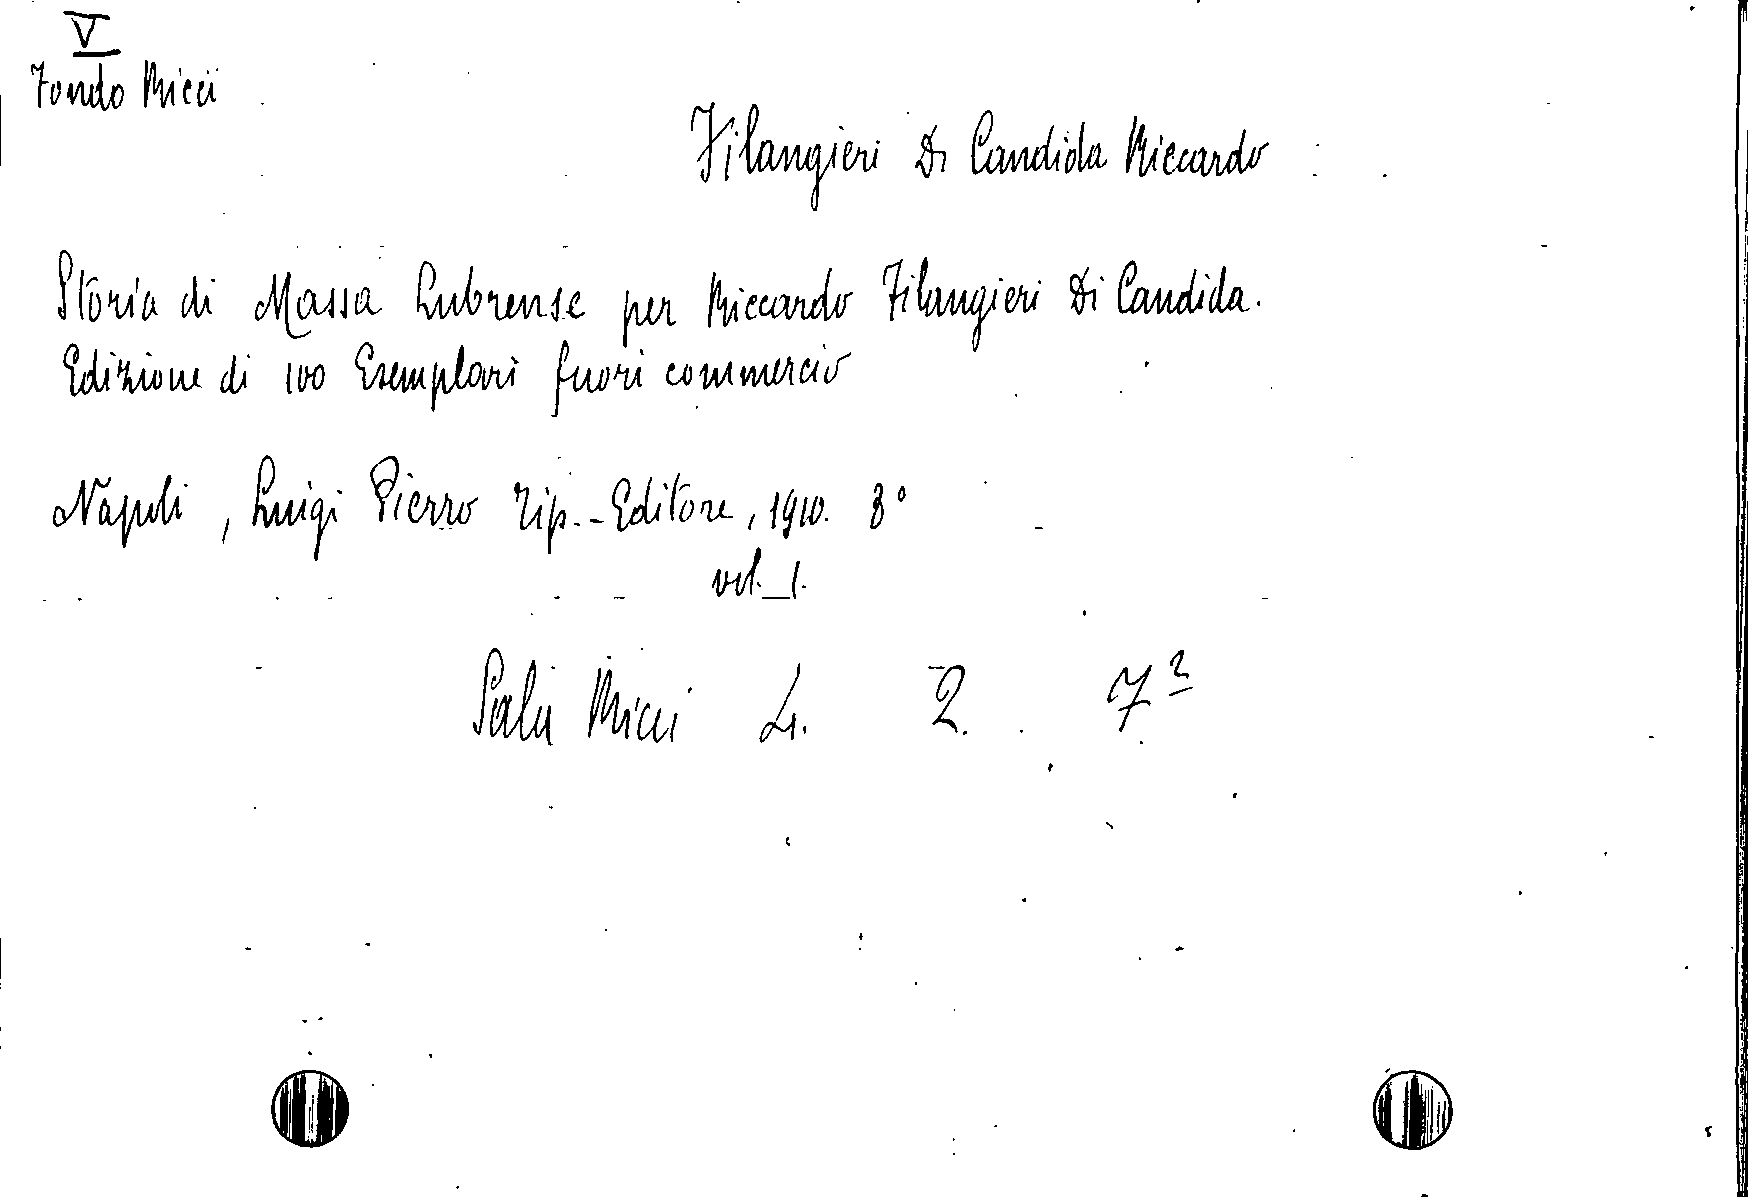 V
Fondo Ricci
Filangieri Di Candida Riccardo
Storia di Massa Lubrense per Riccardo Filangieri Di Candida.
Edizione di 100 Esemplari fuori commercio
Napoli, Luigi Pierro Tip.-Editore, 1910. 8°
vol. 1.
Sala Ricci L. 2. 7²